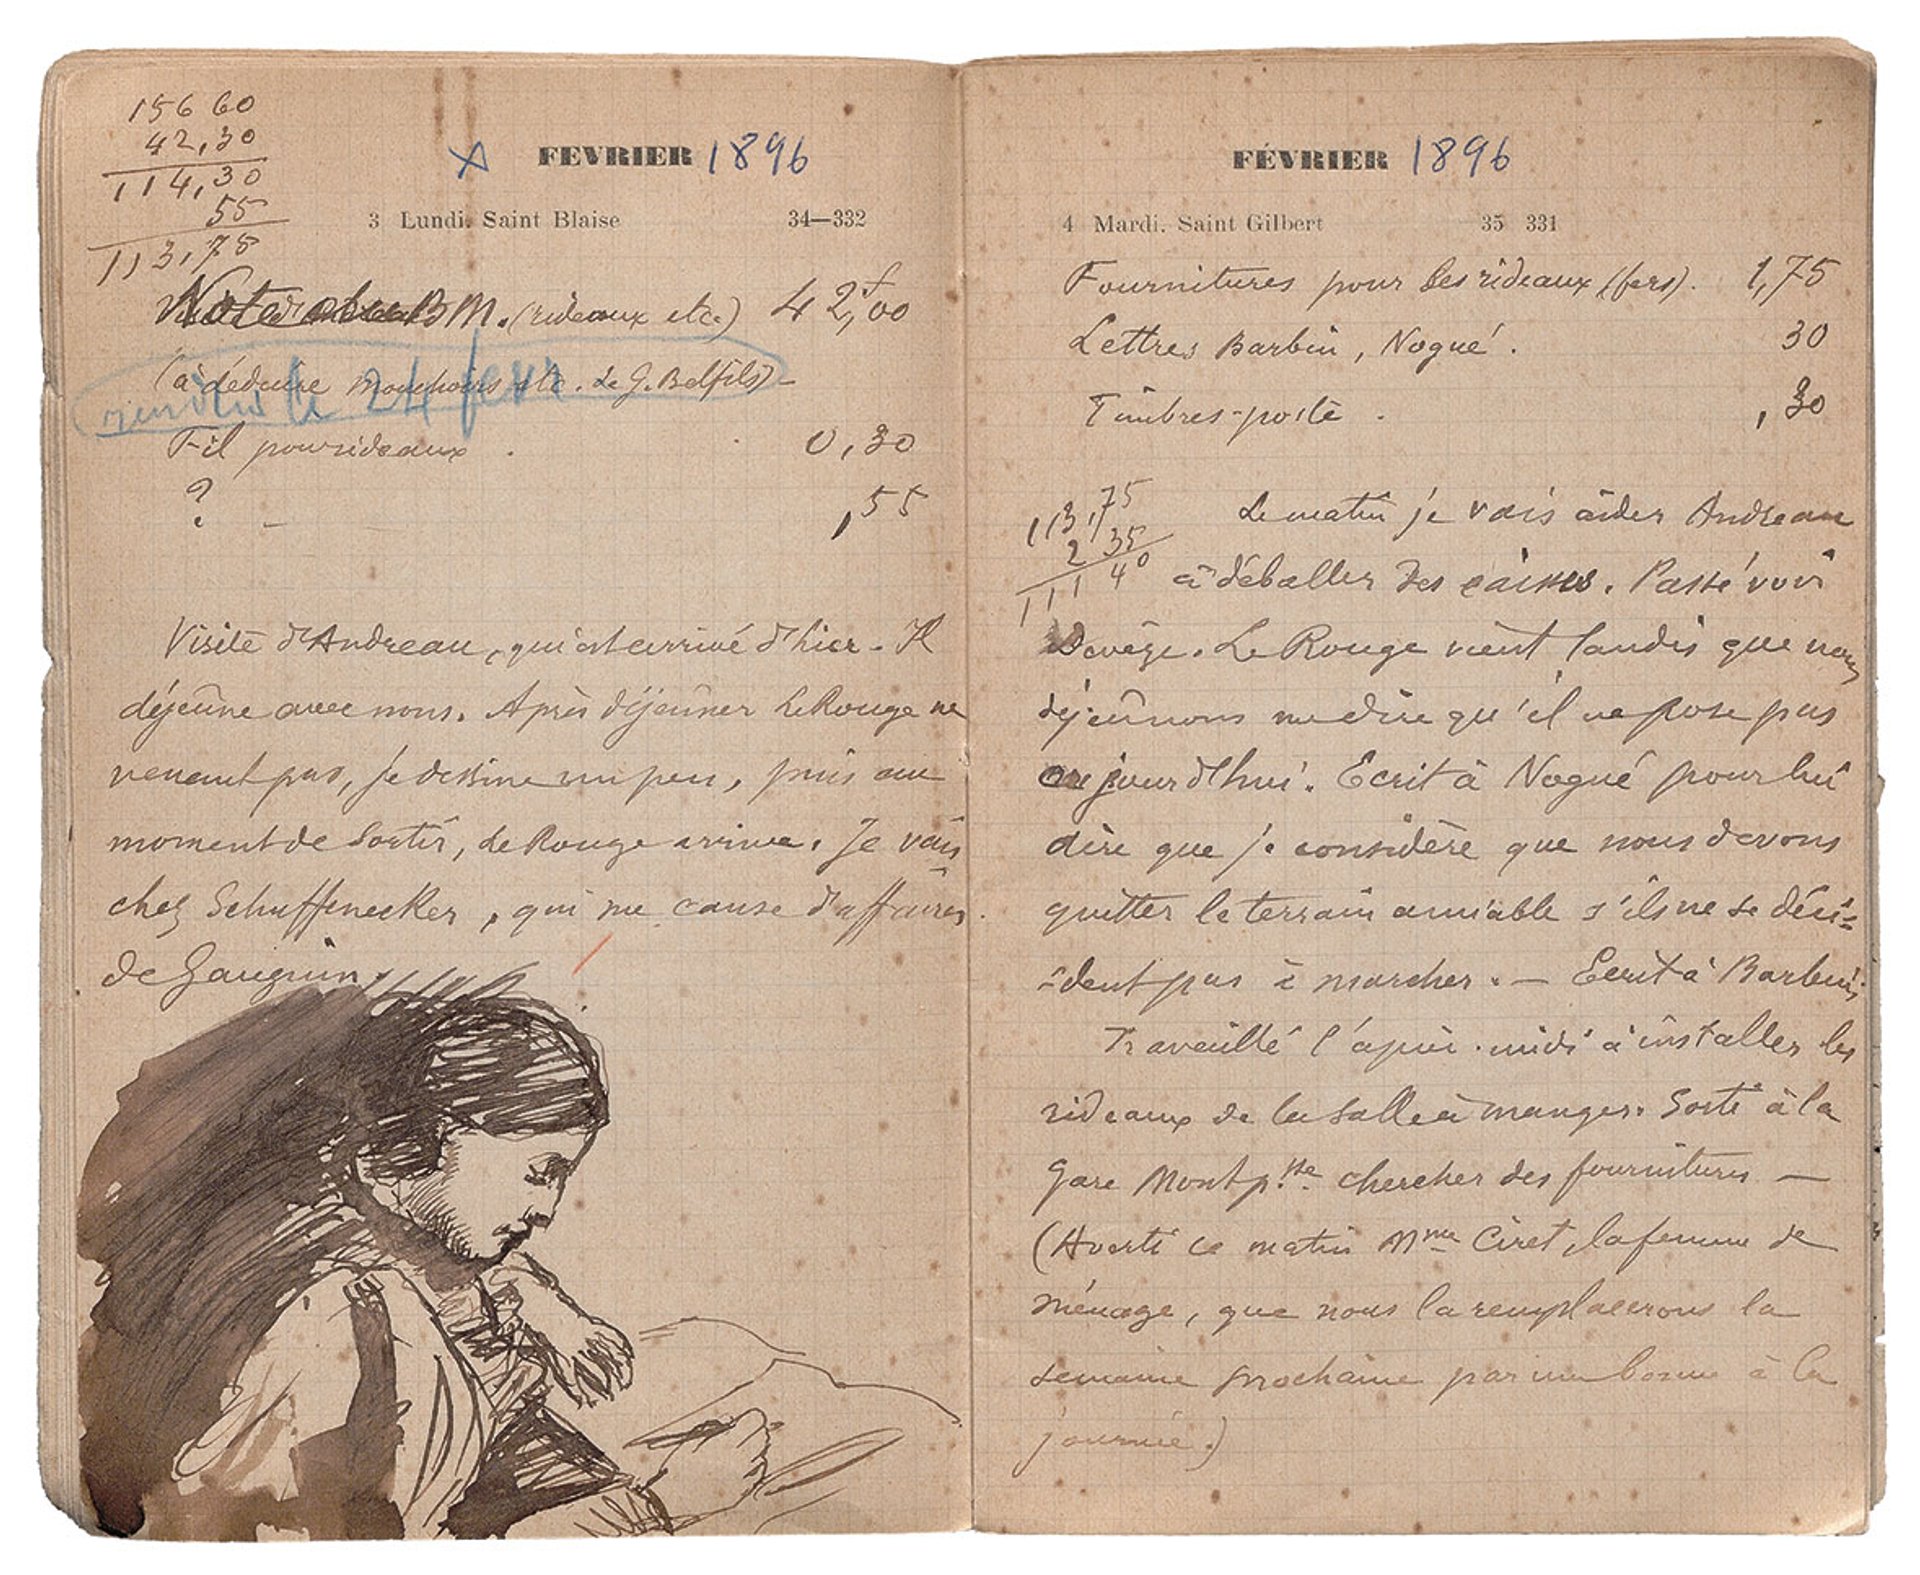 156 60
42,30
114,30
55
113,75
FEVRIER 1896
3 Lundi. Saint Blaise 34—332
BM. (rideaux etc.) 42,f00
(à déduire mouchoirs etc. de G. Belfils) -
rendu le 24 fevr
Fil pour rideaux . 0,30
? - ,55
Visite d'Andreau, qui est arrivé d'hier - Il
déjeûne avec nous. Après déjeûner LeRouge ne
venant pas, je dessine un peu, puis au
moment de sortir, Le Rouge arrive. Je vais
chez Schuffenecker, qui me cause d'affaires
de Gauguin.
FÉVRIER 1896
4 Mardi. Saint Gilbert 35 331
Fournitures pour les rideaux (fers). 1,75
Lettres Barbin, Nogué. 30
Timbres-poste . ,30
113,75
2 35
111 40
Le matin je vais aider Andreau
à déballer des caisses. Passé voir
Devêze. Le Rouge vient tandis que nous
déjeûnons me dire qu'il ne pose pas
aujourd'hui. Ecrit à Nogué pour lui
dire que je considère que nous devons
quitter le terrain amiable s'ils ne se déci-
-dent pas à marcher. — Ecrit à Barbin.
Travaillé l'après-midi à installer les
rideaux de la salle à manger. Sorti à la
gare Montp.sse chercher des fournitures —
(Averti ce matin Mme Ciret, la femme de
ménage, que nous la remplacerons la
semaine prochaine par une bonne à la
journée.)